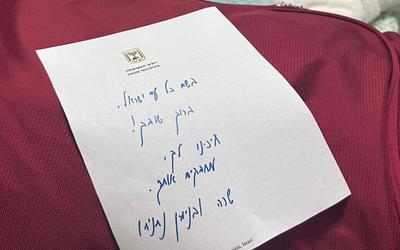 ראש הממשלה
PRIME MINISTER
בשם כל עם ישראל,
ברוך שובך!
חיכינו לך,
מחבקים אותך.
שרה ובנימין נתניהו
Israel